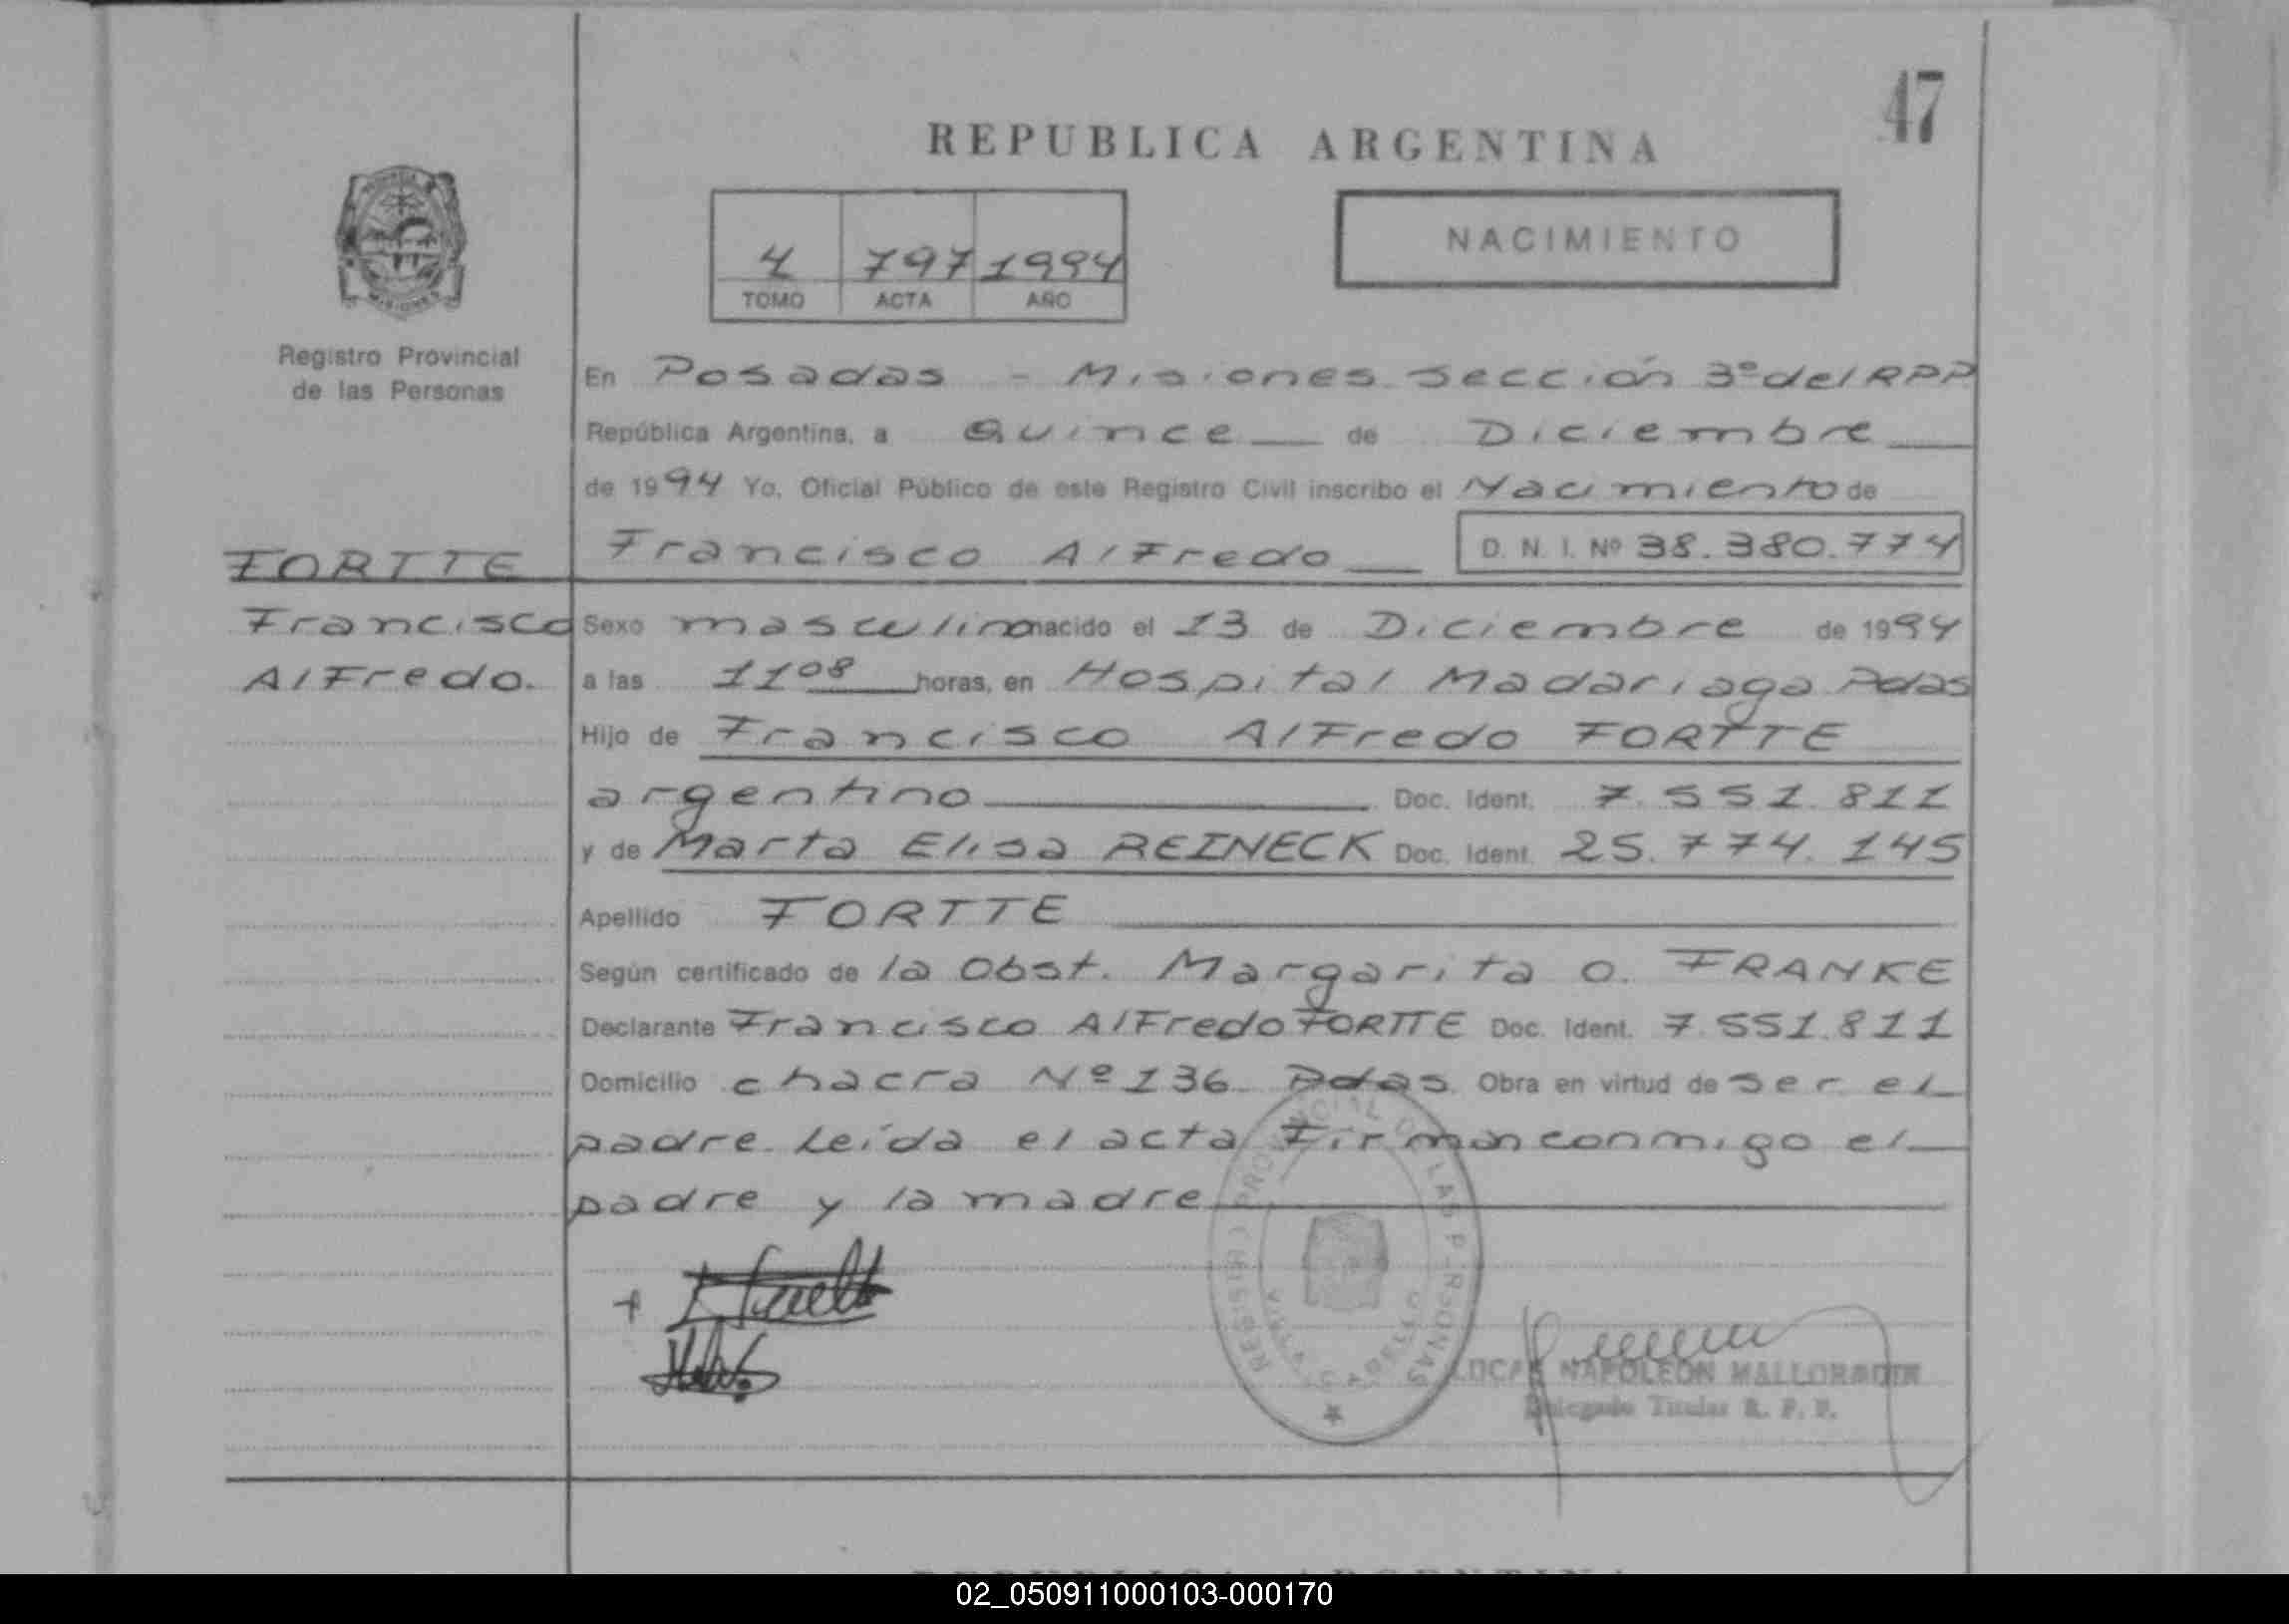 47
REPUBLICA ARGENTINA
4 797 1994
TOMO ACTA AÑO
NACIMIENTO
MISIONES
Registro Provincial
de las Personas
En Posadas - Misiones Sección 3º del RPP
República Argentina, a Quince de Diciembre
de 1994 Yo, Oficial Público de este Registro Civil inscribo el Nacimiento de
Francisco Alfredo D. N. I. Nº 38.380.774
FORTTE
Francisco
Alfredo.
Sexo masculino nacido el 13 de Diciembre de 1994
a las 11 08 horas, en Hospital Madariaga Pdas
Hijo de Francisco Alfredo FORTTE
argentino Doc. Ident. 7.551.811
y de Marta Elisa REINECK Doc. Ident. 25.774.145
Apellido FORTTE
Según certificado de la Obst. Margarita O. FRANKE
Declarante Francisco Alfredo FORTTE Doc. Ident. 7.551.811
Domicilio chacra Nº 136 Pdas. Obra en virtud de ser el
padre. Leída el acta Firman conmigo el
padre y la madre
NAPOLEON
Delegado Titular R. P. P.
REPUBLICA ARGENTINA
02_050911000103-000170